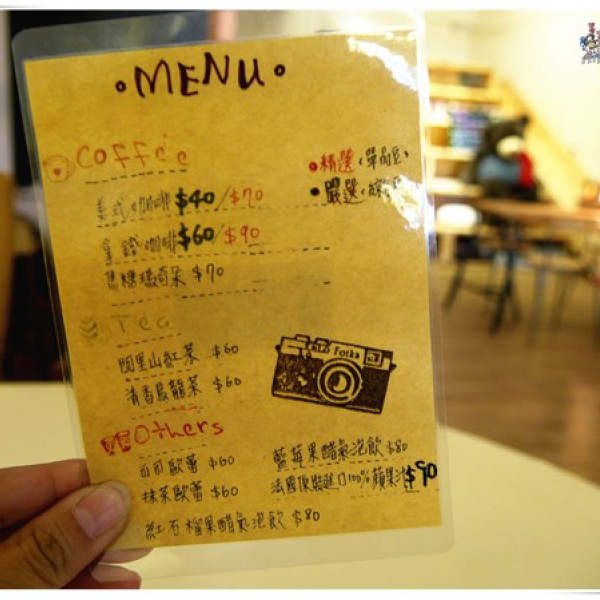 •MENU•
Coffee
•精選（單品豆）
美式咖啡 $40/$70
•嚴選
拿鐵咖啡 $60/$90
焦糖瑪奇朵 $70
Tea
阿里山紅茶 $60
清香烏龍茶 $60
Others
可可歐蕾 $60
藍莓果醋氣泡飲 $80
抹茶歐蕾 $60
法國原裝進口100%蘋果汁 $90
紅石榴果醋氣泡飲 $80